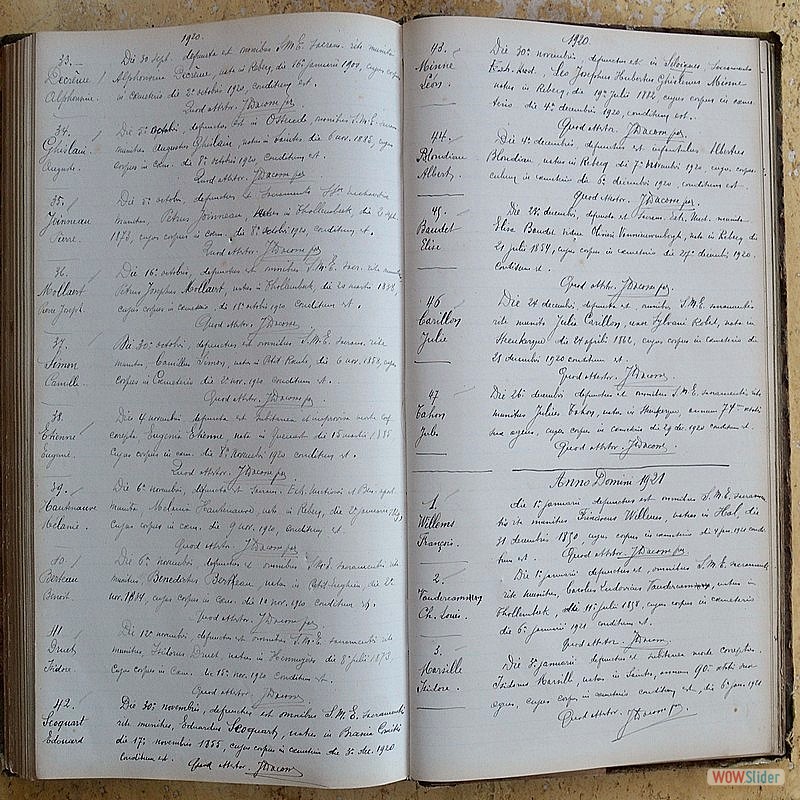 1920.
33.
Decrême
Alphonsine.
Die 30 sept. defuncta est omnibus S.M.E. sacram. rite munita
Alphonsina Decrême, nata in Rebecq, die 16 januarii 1904, cujus corpus
in cœmeterio die 3 octobris 1920, conditum est.
Quod attestor. J Dacom
34.
Ghislain
Auguste.
Die 5 octobri, defunctus est in omnibus S.M.E. sacram
munitus Augustus Ghislain, natus in Saintes die 6 nov. 1835, cujus
corpus in cœm. die 8 octobris 1920, conditum est.
Quod attestor. J Dacom
35.
Joinneau
Pierre.
Die 5 octobri, defunctus est sacramento
munitus, Petrus Joinneau, natus in Thollembeek, die 2 sept.
1873, cujus corpus in cœm. die 8 octobri 1920, conditum est.
Quod attestor. J Dacom
36.
Mollaert
Pierre Joseph.
Die 16 octobris, defunctus est omnibus S.M.E. sacr. rite munitus
Petrus Josephus Mollaert, natus in Thollembeek, die 20 martii
cujus corpus in cœmeterio, die 18 octobris 1920 conditum est.
Quod attestor. J Dacom
37.
Simon
Camille.
Die 30 octobris, defunctus est omnibus S.M.E. sacram. rite
munitus, Camillus Simon, natus in Petit Rœulx, die 6 nov. 1853, cujus
corpus in cœmeterio die 2 nov. 1920 conditum est.
Quod attestor. J Dacom
38.
Etienne
Eugénie.
Die 4 novembri, defuncta est subitanea et improvisa morte
correpta, Eugenia Etienne, nata in Quenast die 15 martii
cujus corpus in cœm. die 8 novembri 1920 conditum est.
Quod attestor. J Dacom
39.
Hautenauve
Mélanie.
Die 6 novembri, defuncta est sacram. Ext. Unctionis et Ben. apost.
munita Melania Hautenauve, nata in Rebecq, die 20 januarii
cujus corpus in cœm. die 9 nov. 1920, conditum est.
Quod attestor. J Dacom
40.
Berteau
Benoit.
Die 6 novembri, defunctus est omnibus S.M.E. sacramentis rite
munitus, Benedictus Berteau, natus in Petit-Enghien, die 2
nov. 1884, cujus corpus in cœm. die 10 nov. 1920 conditum est.
Quod attestor. J Dacom
41
Druet
Isidore.
Die 12 novembri, defunctus est omnibus S.M.E. sacramentis rite
munitus Isidorus Druet, natus in Hennuyères die 8 julii 1873,
cujus corpus in cœm. die 15 nov. 1920 conditum est.
Quod attestor. J Dacom
42.
Scoquart
Edouard
Die 30 novembri, defunctus est omnibus S.M.E. sacramentis
rite munitus, Eduardus Scoquart, natus in Braine Comitis
die 17 novembris 1855, cujus corpus in cœmeterio die 3 dec. 1920
conditum est. Quod attestor. J Dacom
1920.
43.
Minne
Léon.
Die 30 novembri, defunctus est in sacramento
Ext. Unct. Leo Josephus Hubertus Ghislenus Minne
natus in Rebecq, die 19 julii 1882, cujus corpus in cœme-
terio die 4 decembris 1920, conditum est.
Quod attestor. J Dacom
44.
Blondiau
Albert.
Die 4 decembri, defunctus est Albertus
Blondiau natus in Rebecq die 7 novembris 1920, cujus corpus-
culum in cœmeterio die 6 decembri 1920 conditum est.
Quod attestor. J Dacom
45.
Baudet
Elise
Die 24 decembri, defuncta est sacram. Ext. Unct. munita
Elisa Baudet vidua Oliviri Vannieuwenbergh, nata in Rebecq die
21 julii 1854, cujus corpus in cœmeterio die 27 decembri 1920.
conditum est.
Quod attestor. J Dacom
46
Carillon
Julie
Die 24 decembri, defuncta est omnibus S.M.E. sacramentis
rite munita Julia Carillon, uxor Sylvani Robet, nata in
Steenkerque die 24 aprili 1862, cujus corpus in cœmeterio die
28 decembri 1920 conditum est.
Quod attestor. J Dacom
47
Tahon
Jules
Die 26 decembri defunctus est omnibus S.M.E. sacramentis rite
munitus Julius Tahon, natus in Steenkerque, annum 74 ætatis
suæ agens, cujus corpus in cœmeterio die 29 de. 1920 conditum est.
Quod attestor. J Dacom
Anno Domini 1921
1.
Willems
François.
Die 1 januarii, defunctus est omnibus S.M.E. sacramen-
tis rite munitus Franciscus Willems, natus in Hal, die
31 decembri 1850, cujus corpus in cœmeterio die 4 jan. 1921 condi-
tum est. Quod attestor. J Dacom
2.
Ch. Louis.
Die 1 januarii defunctus est, omnibus S.M.E. sacramentis
rite munitus, Carolus Ludovicus natus in
Thollembeek, die 11 julii 1858, cujus corpus in cœmeterio
die 6 januarii 1921 conditum est.
Quod attestor. J Dacom
3.
Marville
Isidore.
Die 3 januarii defunctus est subitanea morte correptus,
Isidorus Marville natus in Saintes, annum 90 ætatis suæ
agens, cujus corpus in cœmeterio conditum est, die 6 jan. 1921
Quod attestor. J Dacom
WOWSlider